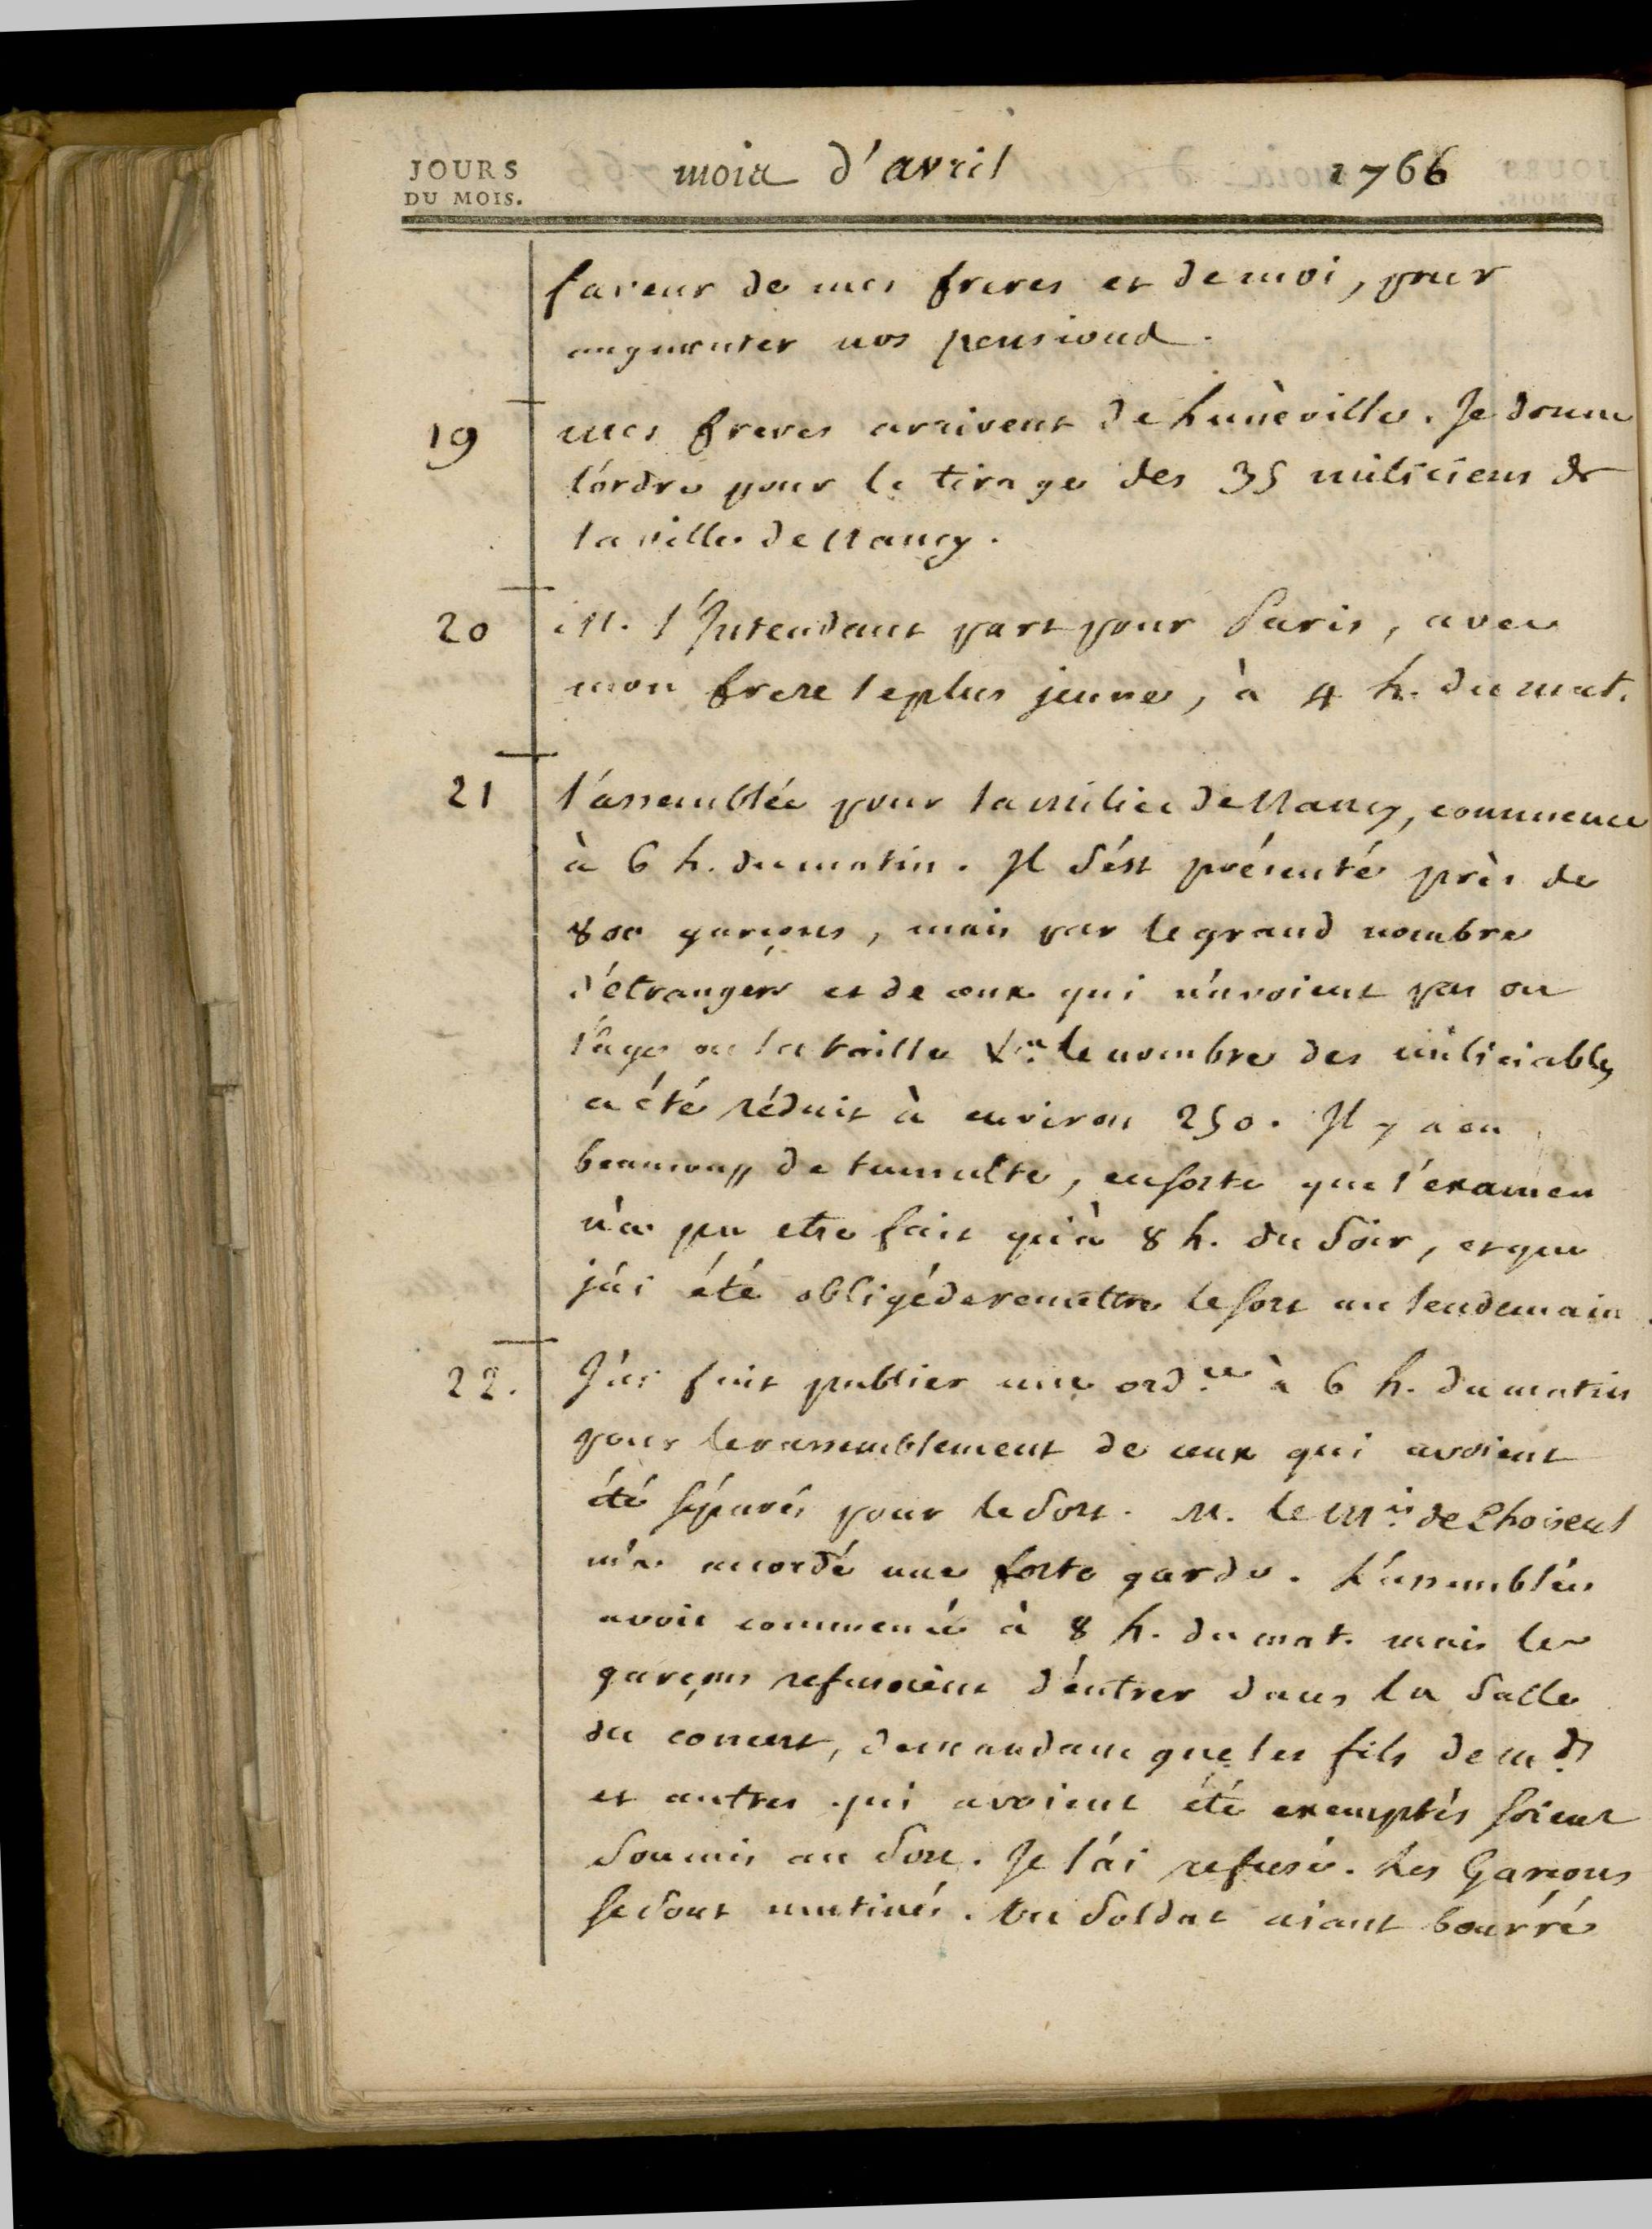 JOURS
DU MOIS.
mois d'avril 1766
faveur de mes freres et de moi, pour
augmenter nos pensions.
19 mes freres arrivent de Lunéville. Je donne
l'ordre pour le tirage des 35 miliciens de
la ville de Nancy.
20 M. l'Intendant part pour Paris, avec
mon frere le plus jeune, à 4 h. du mat.
21 l'assemblée pour la milice de Nancy, commence
à 6 h. du matin. Il s'est présenté près de
800 garçons, mais par le grand nombre
d'étrangers et de ceux qui n'avoient pas ou
l'age ou la taille &a le nombre des miliciables
a été réduit à environ 250. Il y a eu
beaucoup de tumulte, ensorte que l'examen
n'a pu etre fait qu'à 8 h. du soir, et que
j'ai été obligé de remettre le sort au lendemain.
22. J'ai fait publier une ord.ce à 6 h. du matin
pour le rassemblement de ceux qui avoient
été séparés pour le sort. M. le Mis de Choiseul
m'a accordé une forte garde. L'assemblée
avoit commencé à 8 h. du mat. mais les
garçons refusoient d'entrer dans la salle
du concert, demandant que les fils de md
et autres qui avoient été exemptés soient
soumis au sort. Je l'ai refusé. Les Garçons
se sont mutinés. Un soldat aiant bourré